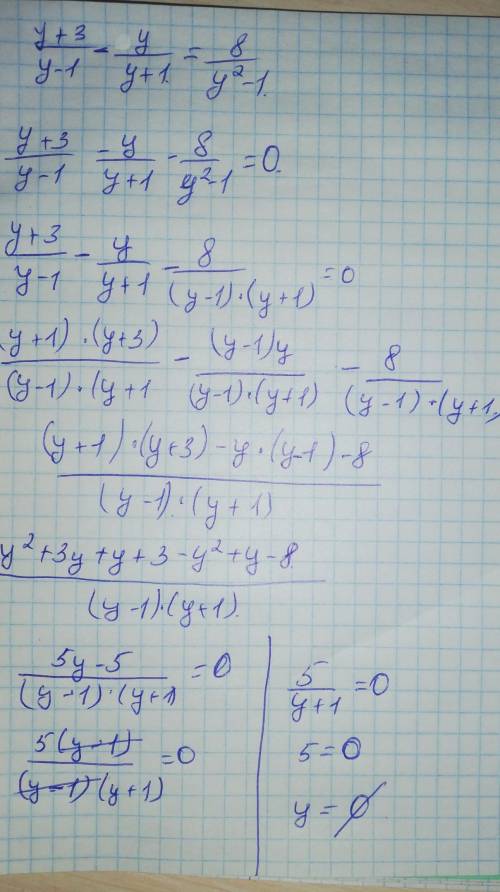 (y+3)/(y-1) - y/(y+1) = 8/(y²-1)
(y+3)/(y-1) - y/(y+1) - 8/(y²-1) = 0.
(y+3)/(y-1) - y/(y+1) - 8/((y-1)·(y+1)) = 0
(y+1)·(y+3)/((y-1)·(y+1 - (y-1)y/((y-1)·(y+1)) - 8/((y-1)·(y+1)
((y+1)·(y+3)-y·(y-1)-8)/((y-1)·(y+1))
(y²+3y+y+3-y²+y-8)/((y-1)·(y+1).)
(5y-5)/((y-1)·(y+1)) = 0
5(y-1)/((y-1)(y+1)) = 0
5/(y+1) = 0
5=0
y=∅